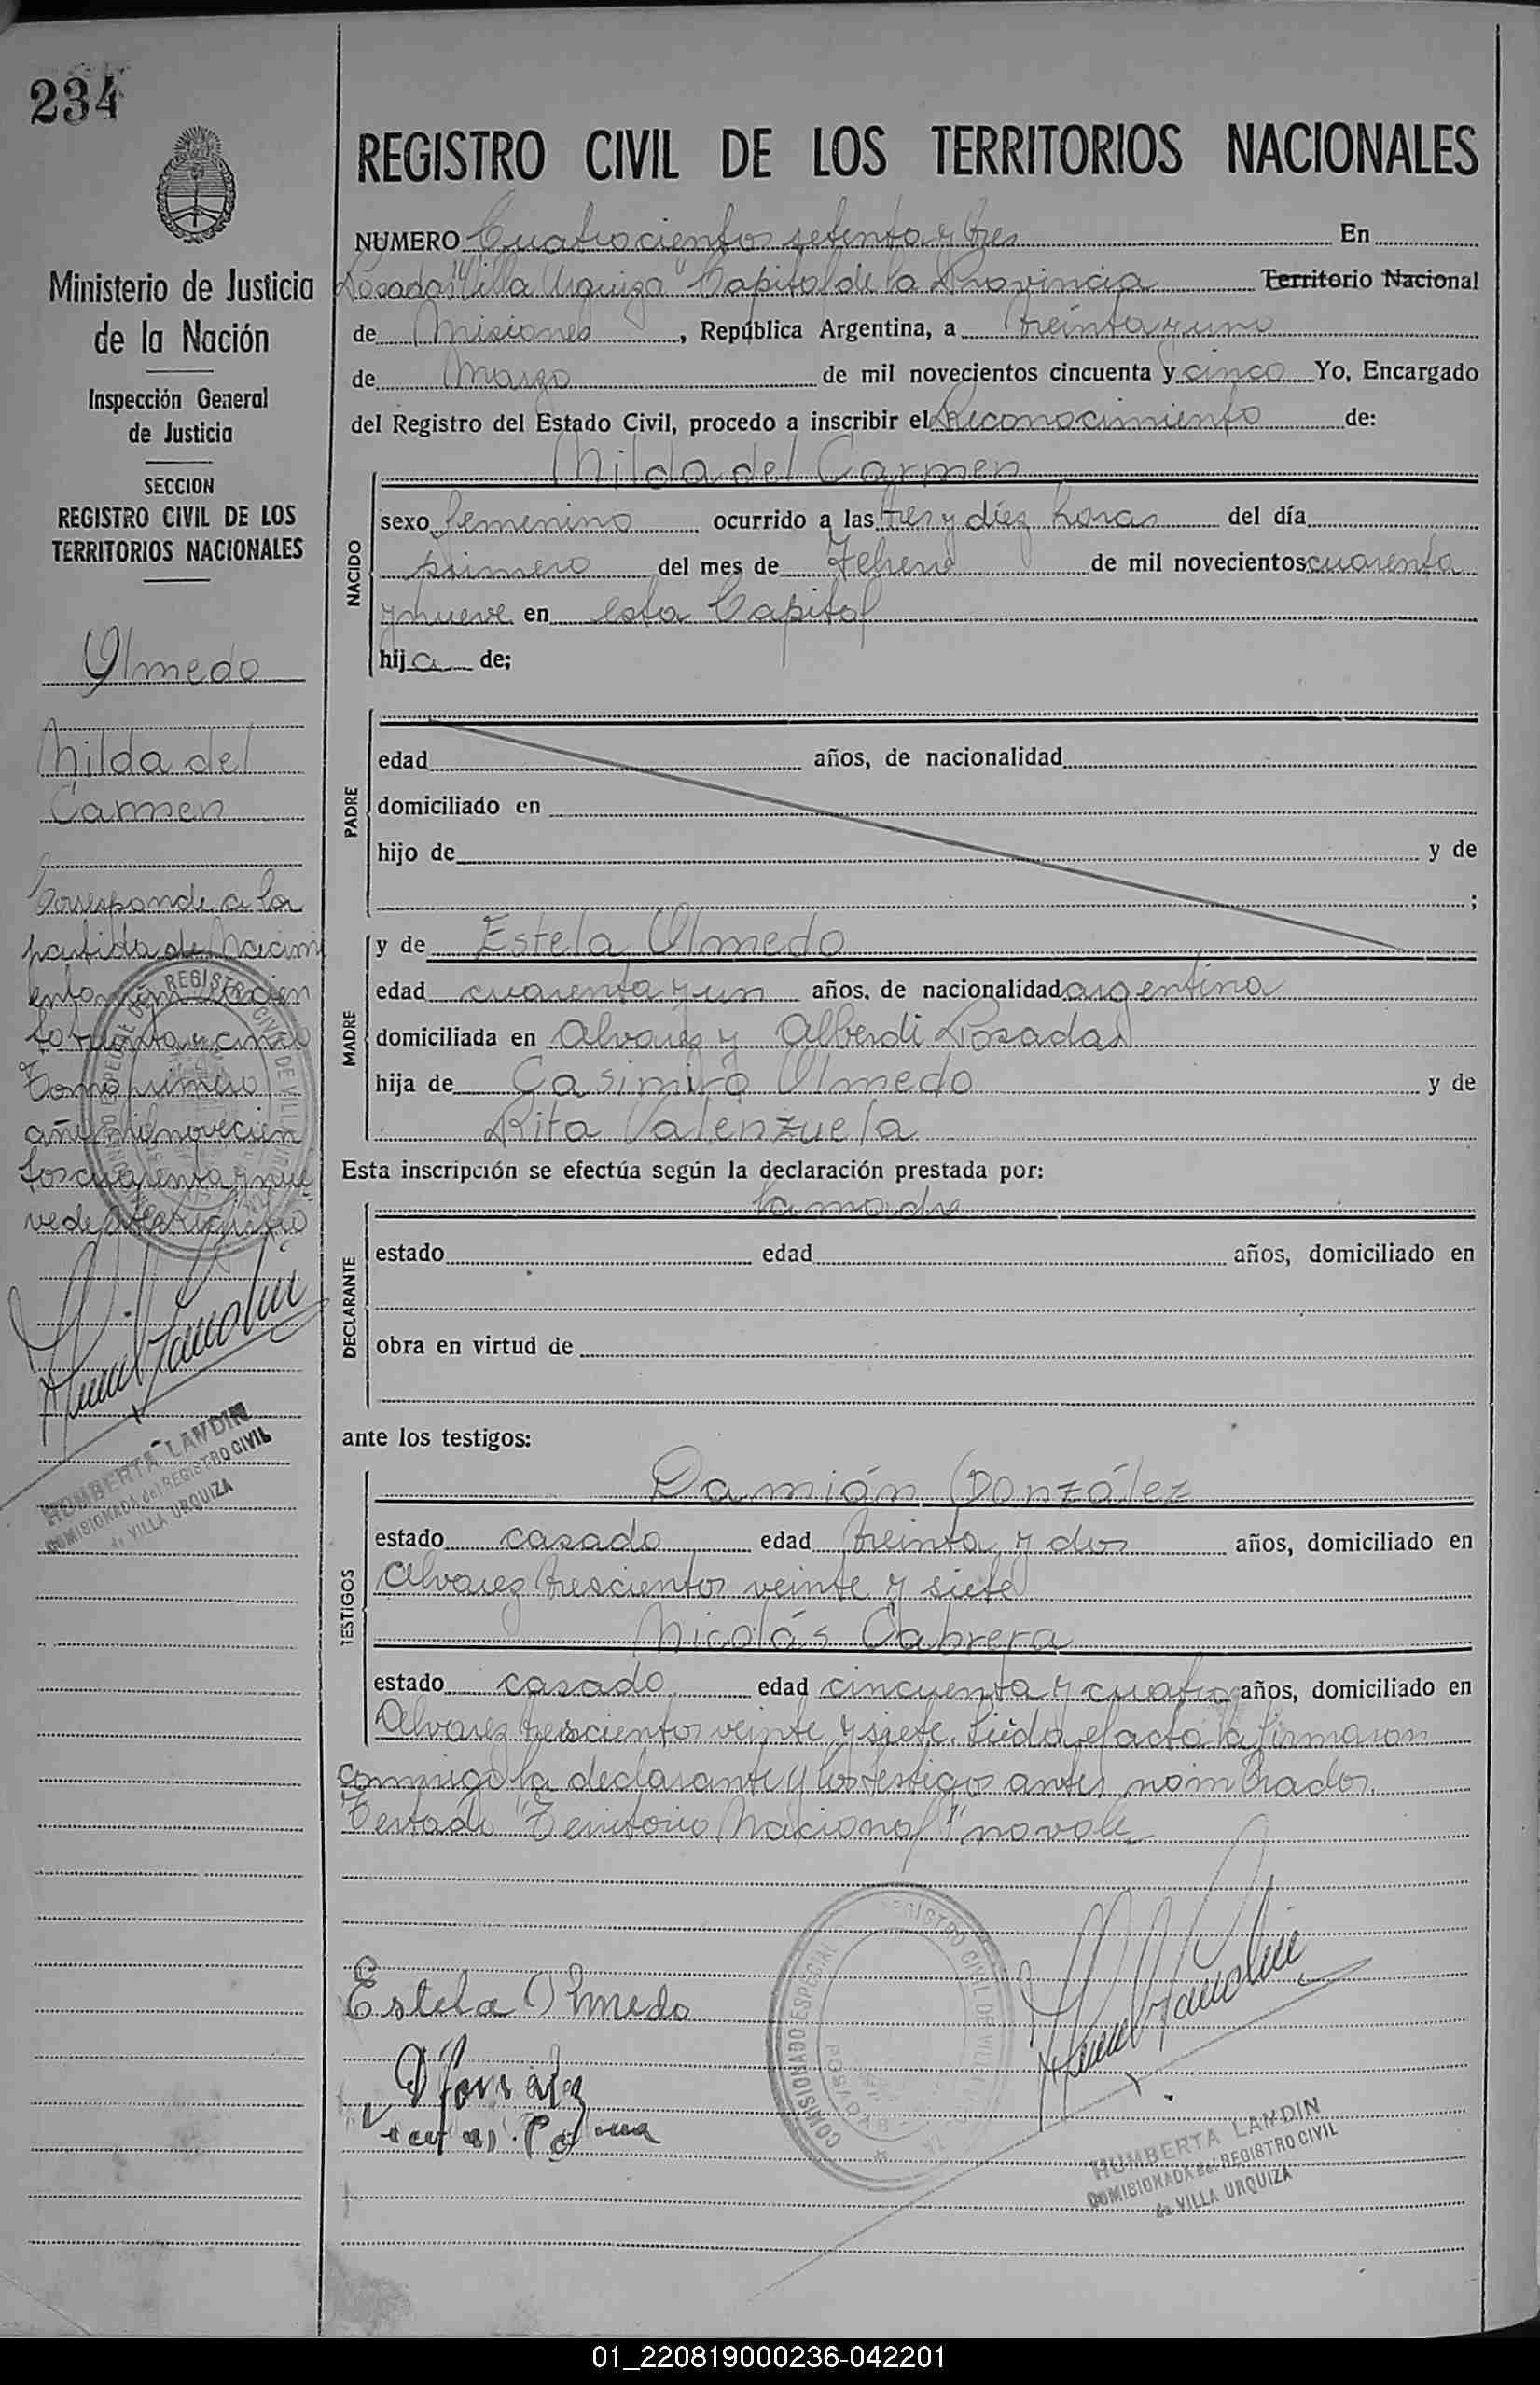 234
Ministerio de Justicia
de la Nación
Inspección General
de Justicia
SECCION
REGISTRO CIVIL DE LOS
TERRITORIOS NACIONALES
Olmedo
Nilda del
Carmen
Corresponde a la
partida de Nacimi
ento
to treinta y cinco
Tomo primero
año mil novecien
tos cuarenta y nue
ve de este Registro
HUMBERTA LANDIN
COMISIONADA del REGISTRO CIVIL
de VILLA URQUIZA
REGISTRO CIVIL DE LOS TERRITORIOS NACIONALES
NUMERO Cuatrocientos setenta y tres En
Posadas "Villa Urquiza" Capital de la Provincia Territorio Nacional
de Misiones, República Argentina, a treinta y uno
de Marzo de mil novecientos cincuenta y cinco Yo, Encargado
del Registro del Estado Civil, procedo a inscribir el Reconocimiento de:
NACIDO
Nilda del Carmen
sexo femenino ocurrido a las tres y diez horas del día
primero del mes de Febrero de mil novecientos cuarenta
y nueve en esta Capital
hija de;
PADRE
edad años, de nacionalidad
domiciliado en
hijo de y de
;
MADRE
y de Estela Olmedo
edad cuarenta y un años. de nacionalidad argentina
domiciliada en Alvarez y Alberdi Posadas
hija de Casimiro Olmedo y de
Rita Valenzuela
Esta inscripción se efectúa según la declaración prestada por:
DECLARANTE
la madre
estado edad años, domiciliado en
obra en virtud de
ante los testigos:
TESTIGOS
Damián González
estado casado edad treinta y dos años, domiciliado en
Alvarez trescientos veinte y siete
Nicolás Cabrera
estado casado edad cincuenta y cuatro años, domiciliado en
Alvarez trescientos veinte y siete. Leída el acta la firmaron
conmigo la declarante y los testigos antes nombrados.
Testado "Territorio Nacional" no vale
Estela Olmedo
COMISIONADO ESPECIAL REGISTRO CIVIL DE VILLA
HUMBERTA LANDIN
COMISIONADA del REGISTRO CIVIL
de VILLA URQUIZA
01_220819000236-042201